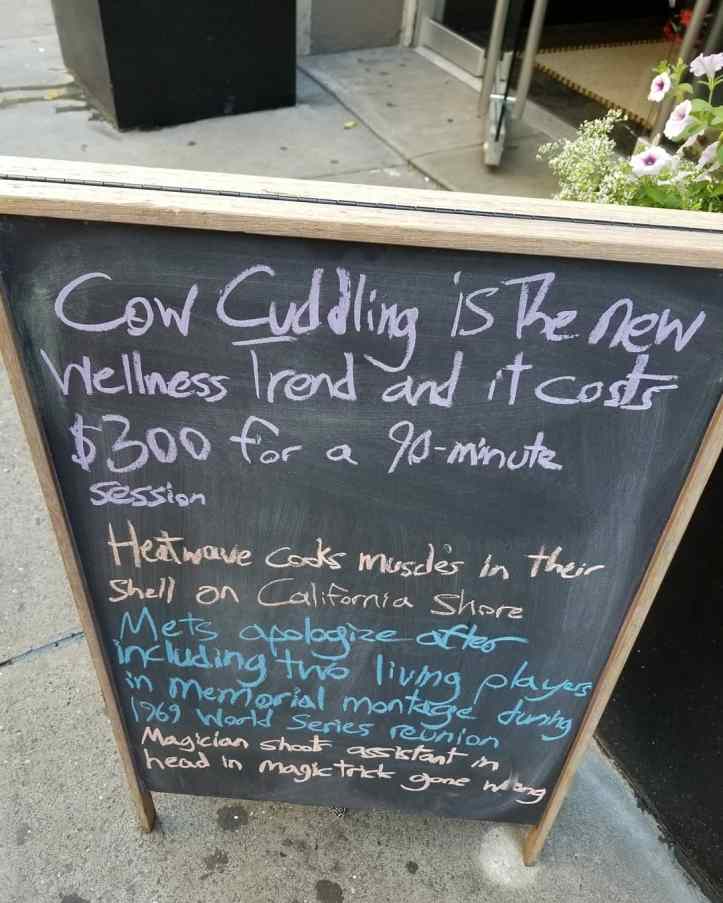 Cow Cuddling is The new
Wellness Trend and it costs
$300 for a 90-minute
session
Heatwave Cooks muscles in their
Shell on California Shore
Mets apologize after
including two living players
in Memorial montage during
1969 World Series reunion
Magician shoots assistant in
head in magic trick gone wrong